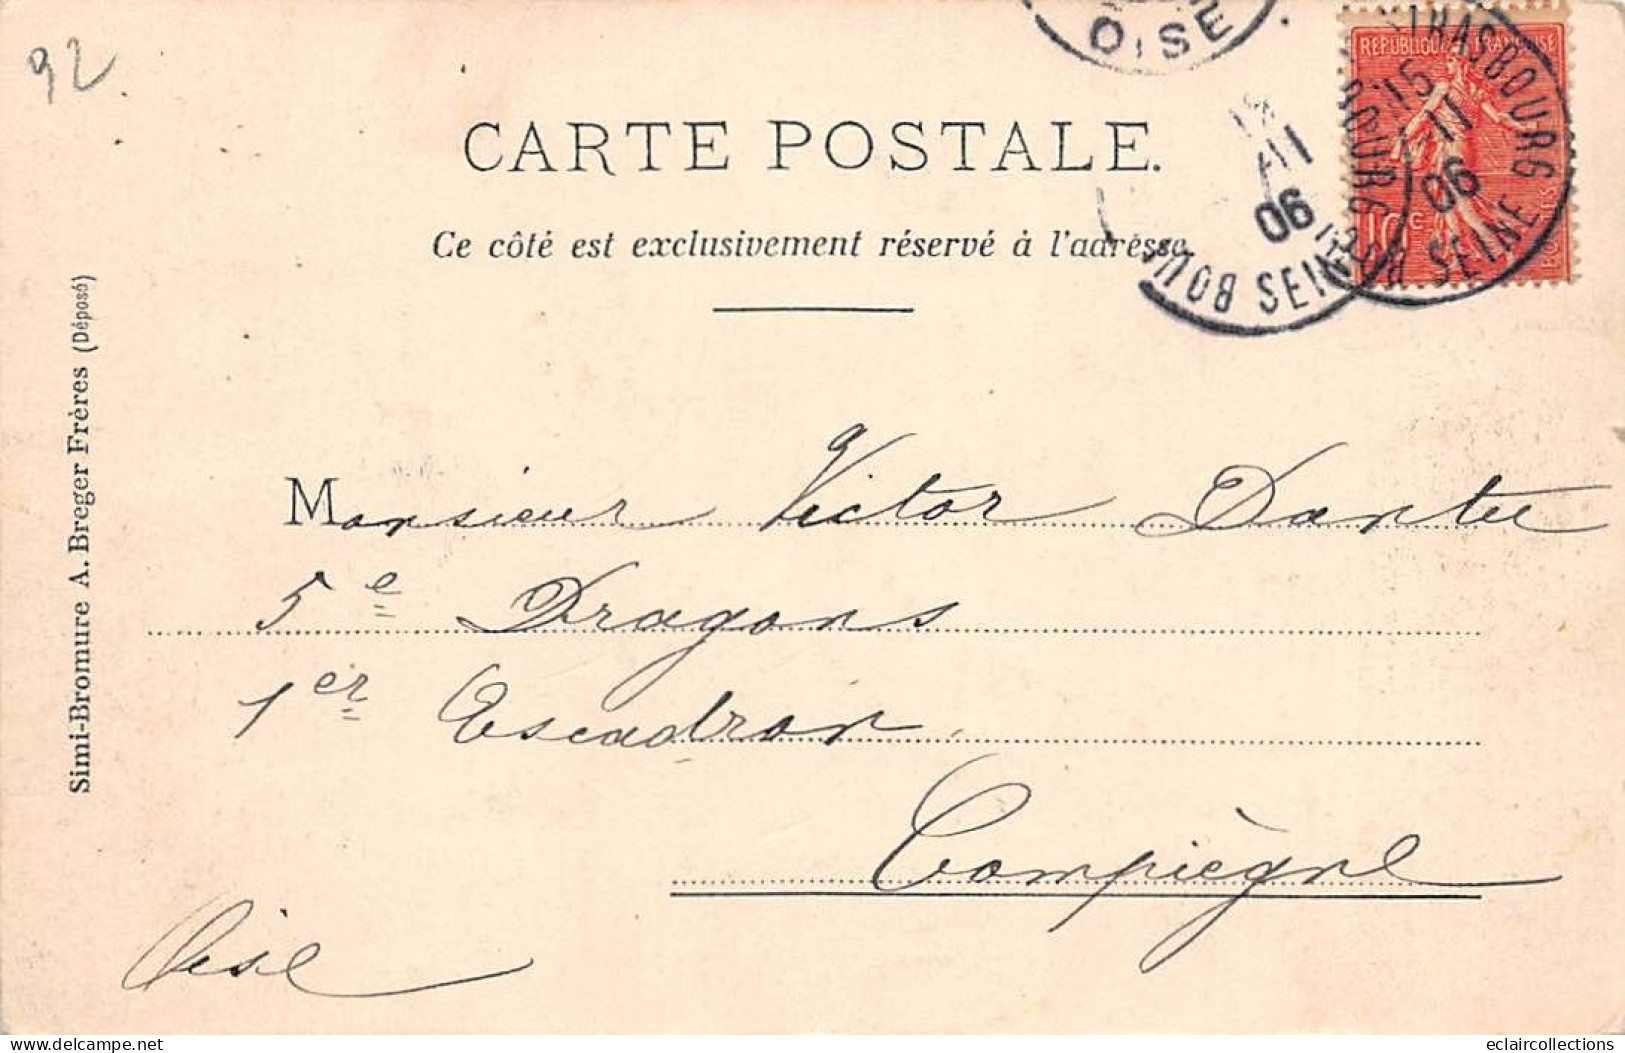 92
OISE
REPUBLIQUE FRANÇAISE
STRASBOURG
15
11
06
SEINE
10c
06
BOUR SEINE
CARTE POSTALE.
Ce côté est exclusivement réservé à l'adresse
Simi-Bromure A. Breger Frères (Déposé)
Monsieur Victor Dantu
5e Dragons
1er Escadron
Compiègne
Oise
eclaircollections